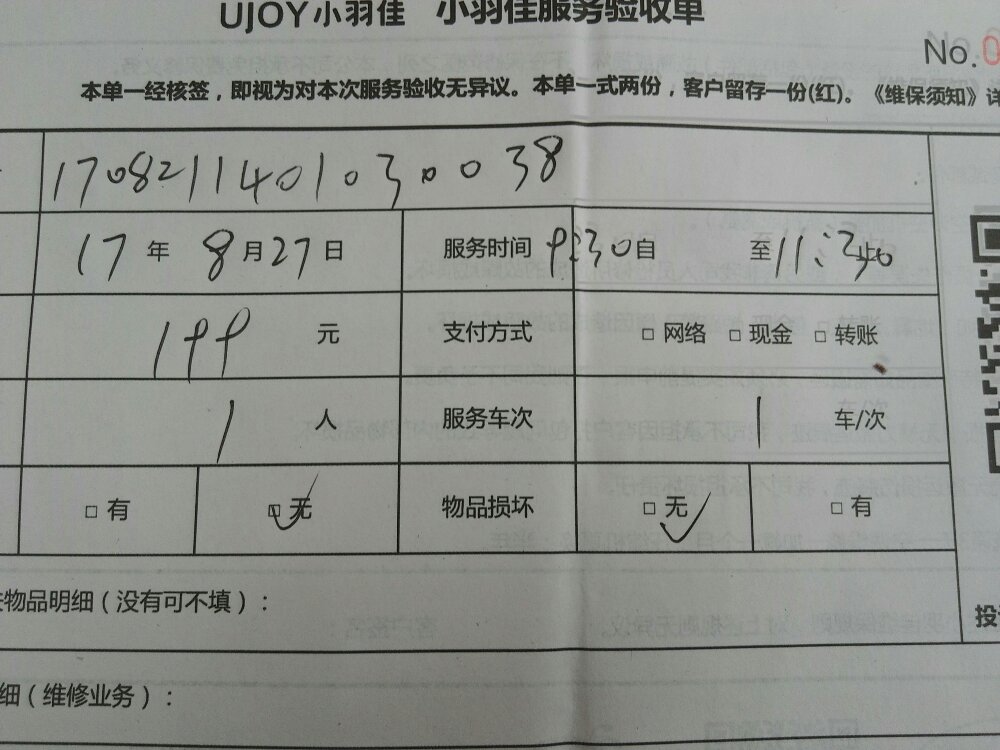 UJOY小羽佳 小羽佳服务验收单
No.0
本单一经核签，即视为对本次服务验收无异议。本单一式两份，客户留存一份(红)。《维保须知》详
1708211401030038
17年 8月27日 服务时间 9:30自 至11:30止
199 元 支付方式 □ 网络 □ 现金 □ 转账
1 人 服务车次 1 车/次
□ 有 □ 无 物品损坏 □ 无 □ 有
物品明细（没有可不填）：
细（维修业务）：
投